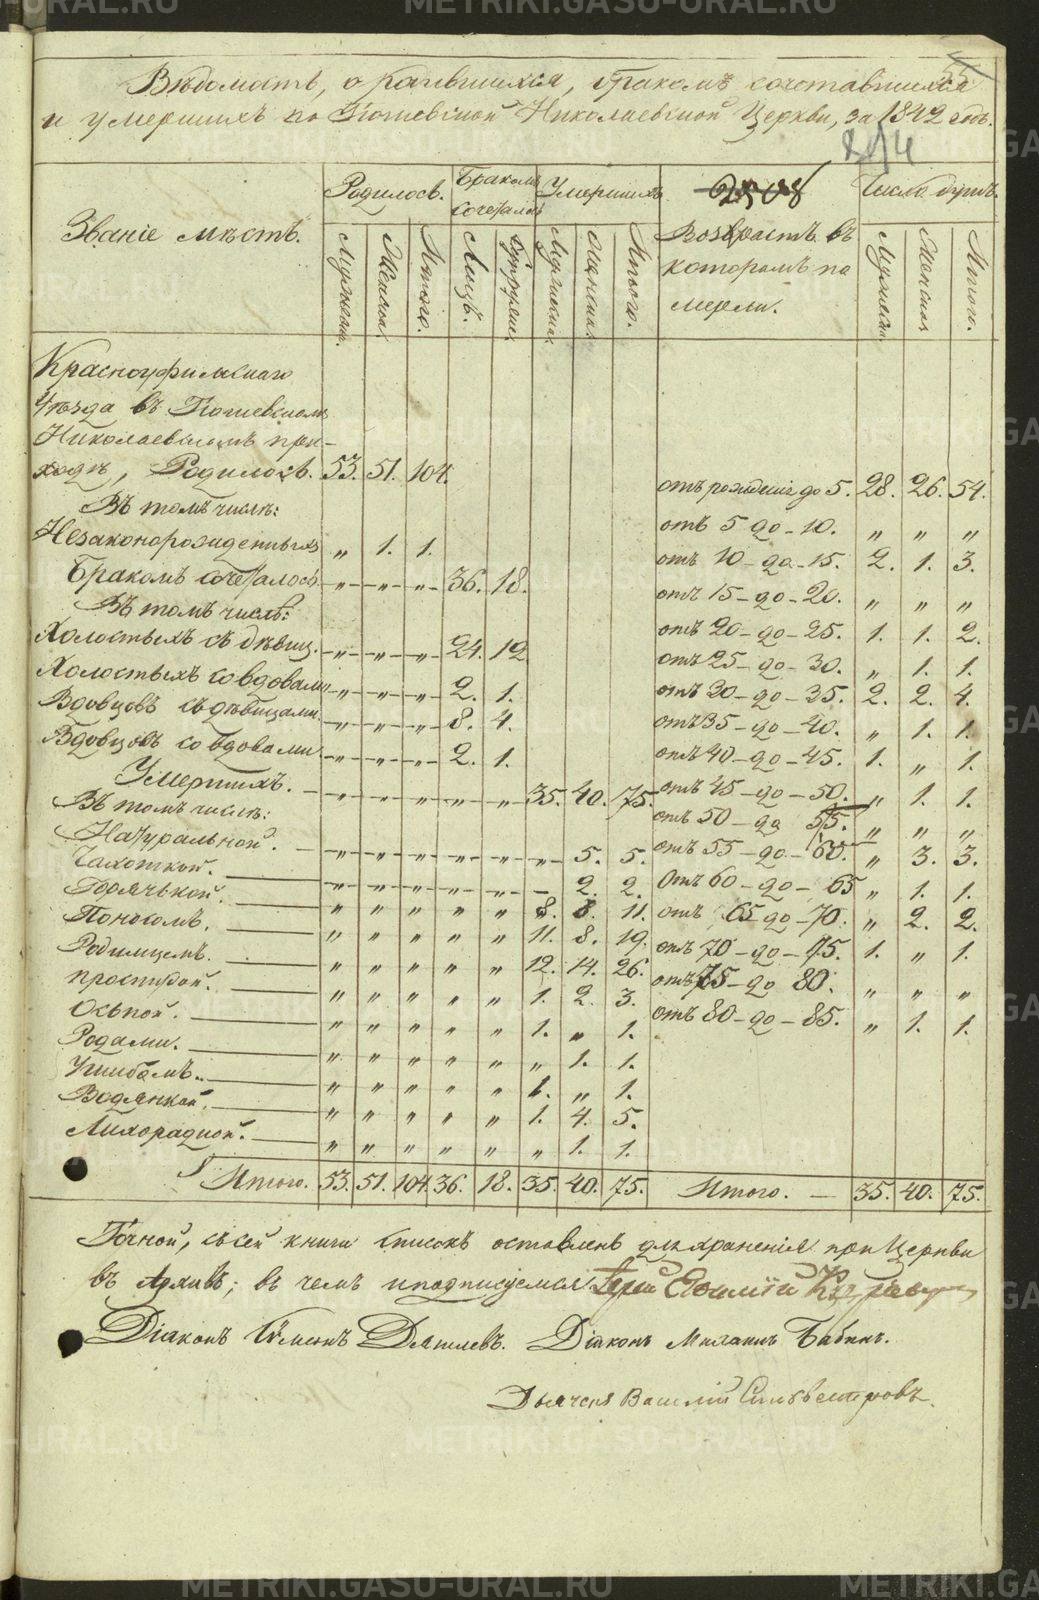 Вѣдомость, о родившихся, бракомъ сочетавшихся
и умершихъ по Николаевской Церкви, за 1842 годъ.
Званіе мѣстъ.
Родилось.
Бракомъ сочеталось
Умершихъ
2508
Возрастъ въ которомъ по мерли.
Число душъ.
Мужеска. Женска. Итого. Лицъ. Мужеска Женска. Итого. Мужеска. Женска Итого.
Красноуфимскаго
Уѣзда въ
Николаевскомъ при-
ходѣ, Родилось. 53. 51. 104.
отъ рожденія до 5. 28. 26. 54.
Въ томъ числѣ:
отъ 5 до - 10. „ „ „
Незаконорожденныхъ „ 1. 1.
отъ 10 - до - 15. 2. 1. 3.
Бракомъ сочеталось - „ - „ - „ - 36. 18.
отъ 15 - до - 20. „ „ „
Въ томъ числѣ:
отъ 20 - до - 25. 1. 1. 2.
Холостыхъ съ дѣвиц. - „ - „ - „ - 24. 12
отъ 25 - до - 30. „ 1. 1.
Холостыхъ со вдовами - „ - „ - „ - 2. 1.
отъ 30 - до - 35. 2. 2. 4.
Вдовцовъ съ дѣвицами. - „ - „ - „ - 8. 4.
отъ 35 - до - 40. „ 1. 1.
Вдовцовъ со вдовами - „ - „ - „ - 2. 1.
отъ 40 - до - 45. 1. „ 1.
Умершихъ. - „ - „ - „ - „ - „ - 35. 40. 75.
отъ 45 - до - 50. „ 1. 1.
Въ томъ числѣ:
отъ 50 - до 55. „ „ „
Натуральной. - „ - „ - „ - „ - „ - „ - 5. 5.
отъ 55 - до - 60. „ 3. 3.
Чахоткой. - „ - „ - „ - „ - „ - 2. 2.
Отъ 60 - до - 65 „ 1. 1.
Горячькой. „ „ „ „ „ 8. 11.
отъ 65 до - 70. „ 2. 2.
Поносомъ. „ „ „ „ „ 11. 8. 19.
отъ 70 - до - 75. 1. „ 1.
Родимцемъ. „ „ „ „ „ 12. 14. 26.
отъ 75 - до 80. „ „ „
простудой. „ „ „ „ „ 1. 2. 3.
отъ 80 - до - 85. „ 1. 1.
Оспой. „ „ „ „ „ 1. „ 1.
Родами. „ „ „ „ „ „ 1. 1.
Ушибомъ. „ „ „ „ „ 1. „ 1.
Водянкой. „ „ „ „ „ 1. 4. 5.
Лихорадкой. „ „ „ „ „ „ 1. 1.
Итого. 53. 51. 104. 36. 18. 35. 40. 75. Итого. - 35. 40. 75.
Точной, съ сей книги списокъ оставленъ для храненія при Церкви
въ Архивѣ; въ чемъ и подписуемся Іерей
Діаконъ Діаконъ Бабинъ.
Дьячекъ Василій Сильвестровъ.
METRIKI.GASO-URAL.RU